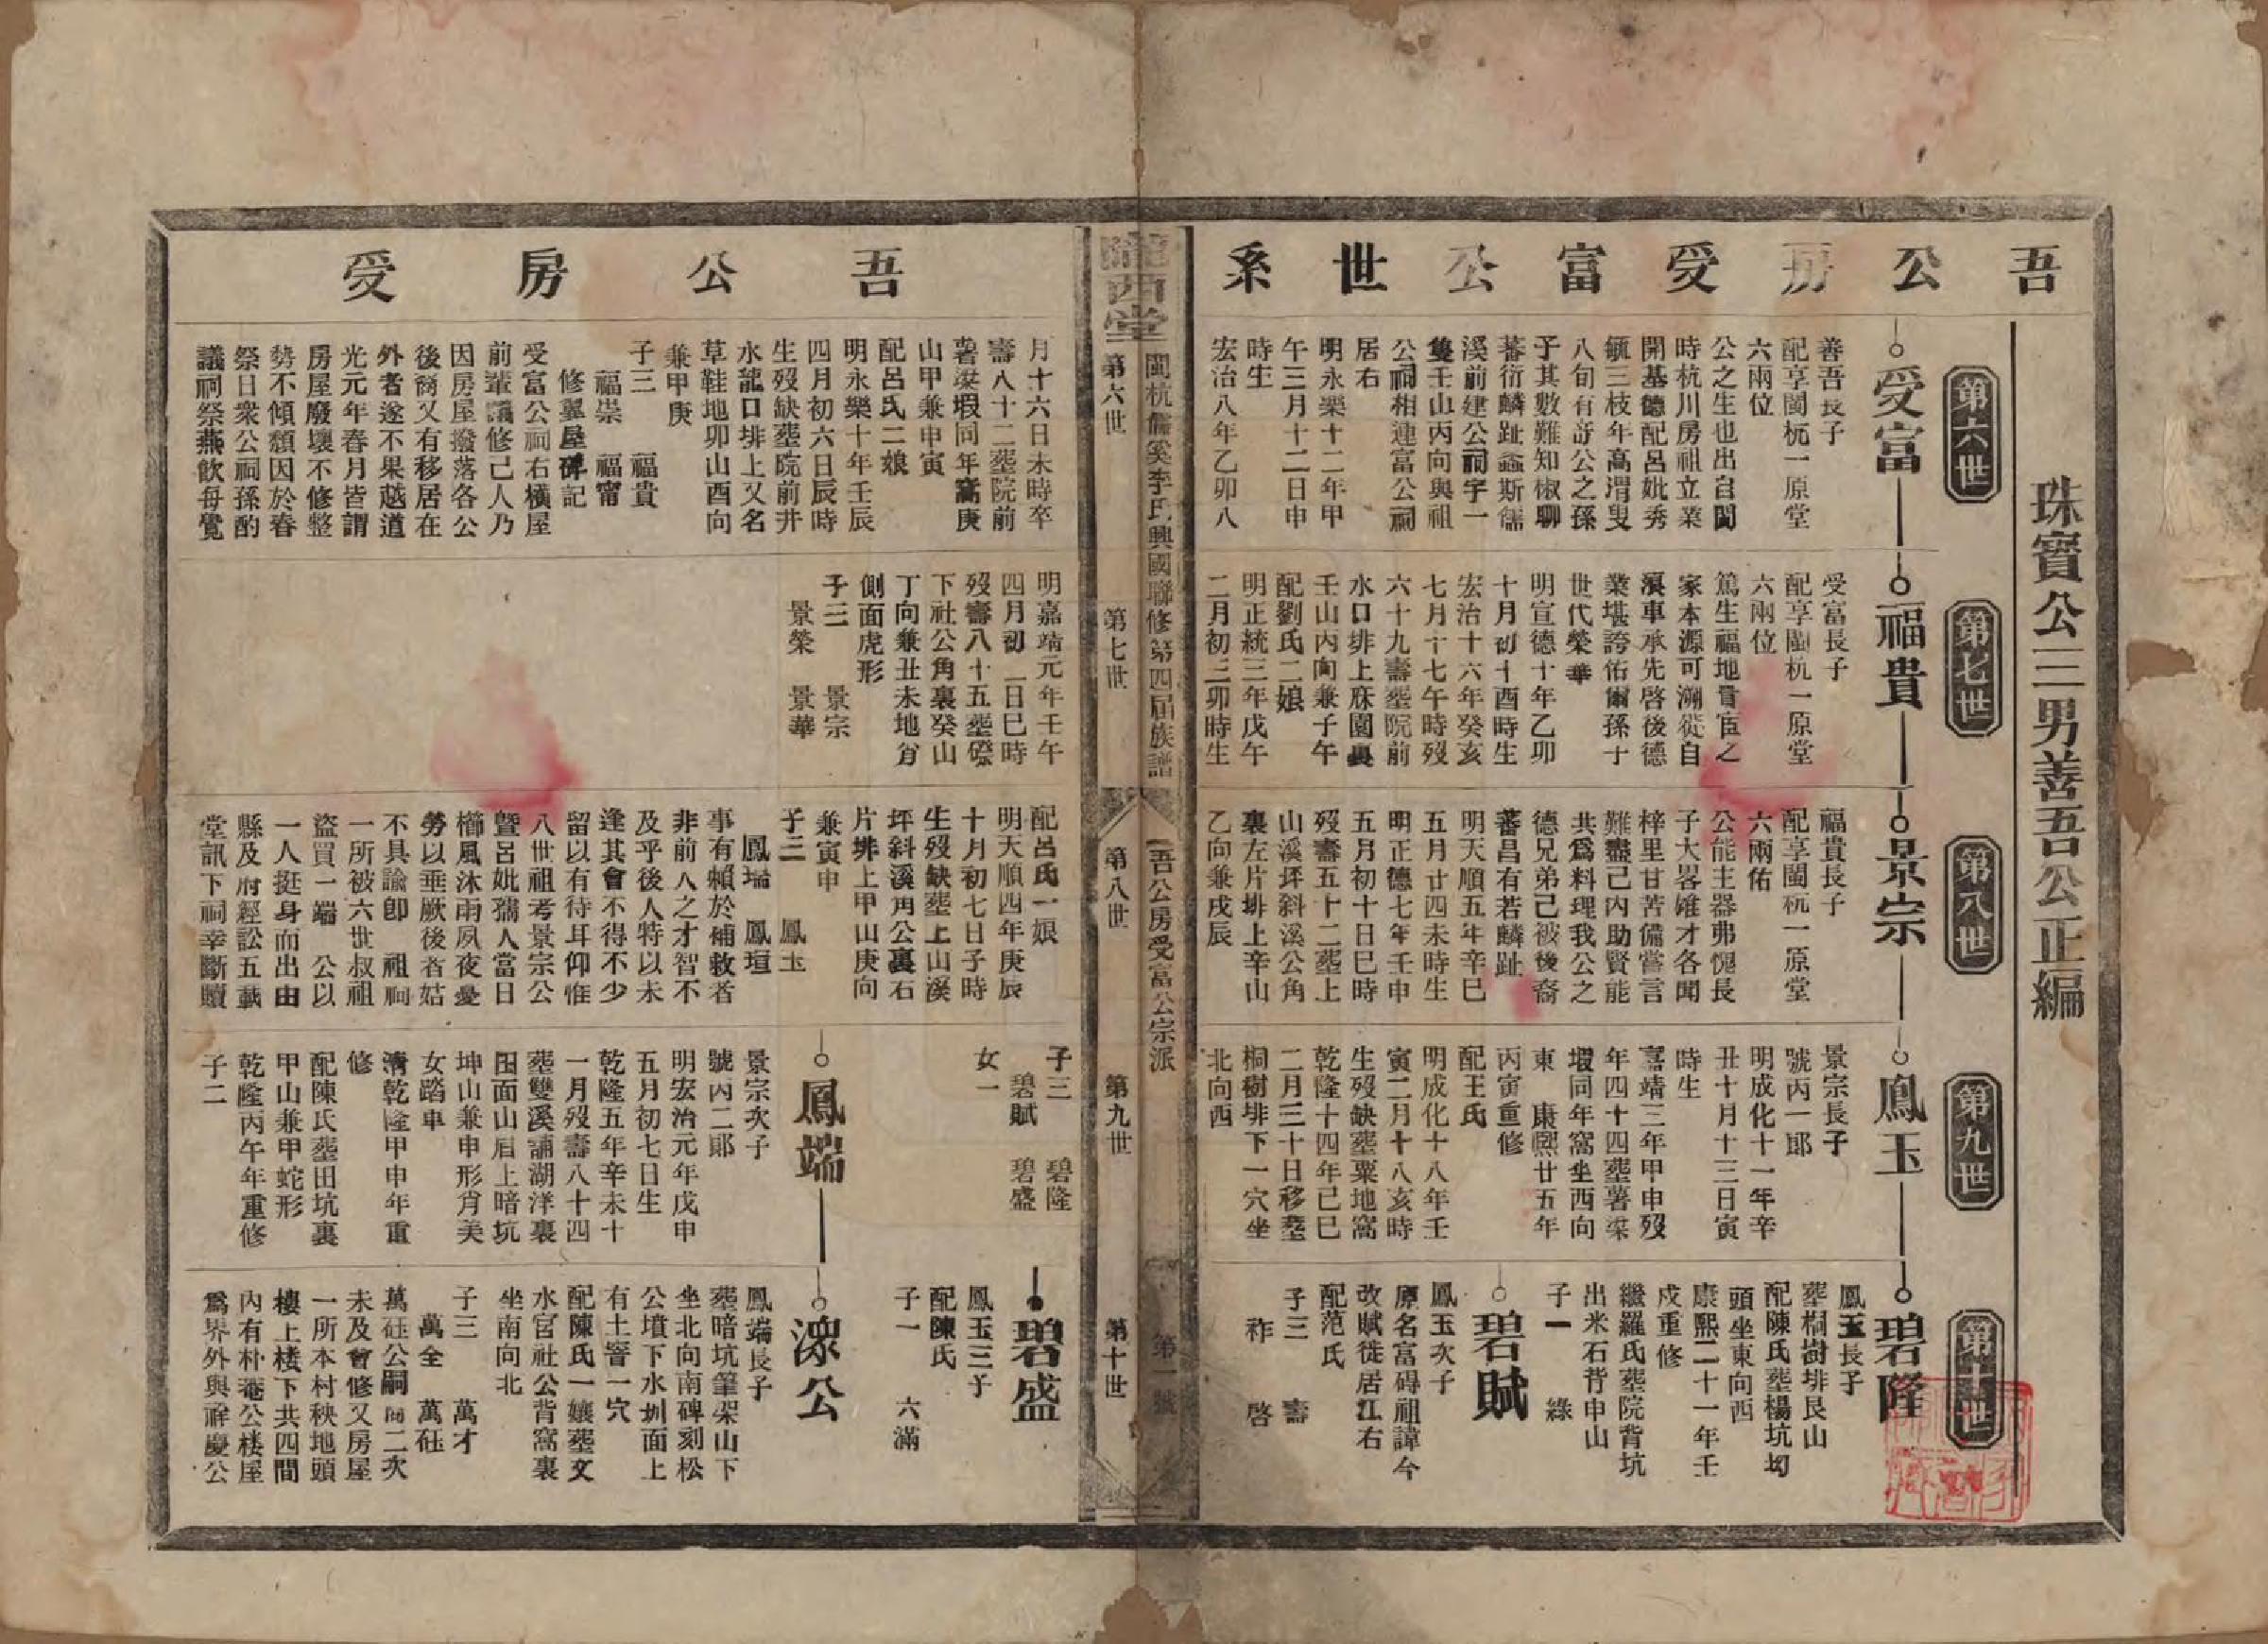 吾公房受富公世系
珠寶公三男善吾公正編
第六世
受富
善吾長子
配享閩杭一原堂
六兩位
公之生也出自閩
時杭川房祖立業
開基德配呂妣秀
毓三枝年高渭叟
八旬有奇公之孫
子其數難知椒聊
蕃衍麟趾螽斯儒
溪前建公祠宇一
隻壬山丙向與祖
公祠相連富公祠
居右
明永樂十二年甲
午三月十二日申
時生
宏治八年乙卯八
第七世
福貴
受富長子
配享閩杭一原堂
六兩位
篤生福地官之
家本源可溯從自
滇車承先啓後德
業堪誇佑爾孫子
世代榮華
明宣德十年乙卯
十月初十酉時生
宏治十六年癸亥
七月十七午時歿
六十九壽塟院前
水口排上庥園裏
壬山丙向兼子午
配劉氏二娘
明正統三年戊午
二月初三卯時生
第八世
景宗
福貴長子
配享閩杭一原堂
六兩佑
公能主器弗愧長
子大畧雄才各聞
梓里甘苦備嘗言
難盡己內助賢能
共爲料理我公之
德兄弟己被後裔
蕃昌有若麟趾
明天順五年辛巳
五月廿四未時生
明正德七年壬申
五月初十日巳時
歿壽五十二塟上
山溪坪斜溪公角
裏左片排上辛山
乙向兼戌辰
第九世
鳳玉
景宗長子
號丙一郎
明成化十一年辛
丑十月十三日寅
時生
嘉靖三年甲申歿
年四十四塟薯梁
塅同年窩坐西向
東 康熙廿五年
丙寅重修
配王氏
明成化十八年壬
寅二月十八亥時
生歿缺塟粟地窩
乾隆十四年己巳
二月三十日移塟
桐樹排下一穴坐
北向西
第十世
碧隆
鳳玉長子
葬桐樹排艮山
配陳氏葬楊坑坳
頭坐東向西
康熙二十一年壬
戌重修
繼羅氏葬院背坑
出米石背申山
子一 綠
碧賦
鳳玉次子
原名富碍祖諱今
改賦徙居江右
配范氏
子三 壽
祚 啓
隴西堂
閩杭儒溪李氏興國聯修第四屆族譜
吾公房受富公宗派
第六世
第七世
第八世
第九世
第十世
第一號
吾公房受
月十六日未時卒
壽八十二塟院前
薯梁塅同年窩庚
山甲兼申寅
配呂氏二娘
明永樂十年壬辰
四月初六日辰時
生歿缺塟院前井
水龍口排上又名
草鞋地卯山酉向
兼甲庚
子三 福貴
福崇 福甯
修翼屋碑記
受富公祠右橫屋
前輩議修己人乃
因房屋撥落各公
後裔又有移居在
外者遂不果越道
光元年春月皆謂
房屋廢壞不修整
勢不傾頹因於春
祭日衆公祠孫酌
議祠祭燕飲每覺
明嘉靖元年壬午
四月初一日巳時
歿壽八十五塟磜
下社公角裏癸山
丁向兼丑未地肖
側面虎形
子三 景宗
景榮 景華
配呂氏一娘
明天順四年庚辰
十月初七日子時
生歿缺塟上山溪
坪斜溪角公裏右
片排上甲山庚向
兼寅申
子三 鳳玉
鳳端 鳳垣
事有賴於補救者
非前人之才智不
及乎後人特以未
逢其會不得不少
留以有待耳仰惟
八世祖考景宗公
曁呂妣孺人當日
櫛風沐雨夙夜憂
勞以垂厥後者姑
不具論卽 祖祠
一所被六世叔祖
盜買一端 公以
一人挺身而出由
縣及府經訟五載
堂訊下祠幸斷贖
子三 碧隆
碧賦 碧盛
女一
鳳端
景宗次子
號丙二郎
明宏治元年戊申
五月初七日生
乾隆五年辛未十
一月歿壽八十四
塟雙溪誦湖洋裏
田面山眉上暗坑
坤山兼申形肖美
女踏車
清乾隆甲申年重
修
配陳氏塟田坑裏
甲山兼甲蛇形
乾隆丙午年重修
子二
碧盛
鳳玉三子
配陳氏
子一 六滿
淥公
鳳端長子
葬暗坑筆架山下
坐北向南碑刻松
公墳下水圳面上
有土窖一穴
配陳氏一孃塟文
水官社公背窩裏
坐南向北
子三 萬才
萬全 萬砡
萬砡公嗣 二次
未及會修又房屋
一所本村秧地頭
樓上楼下共四間
內有朴菴公楼屋
爲界外與祥慶公